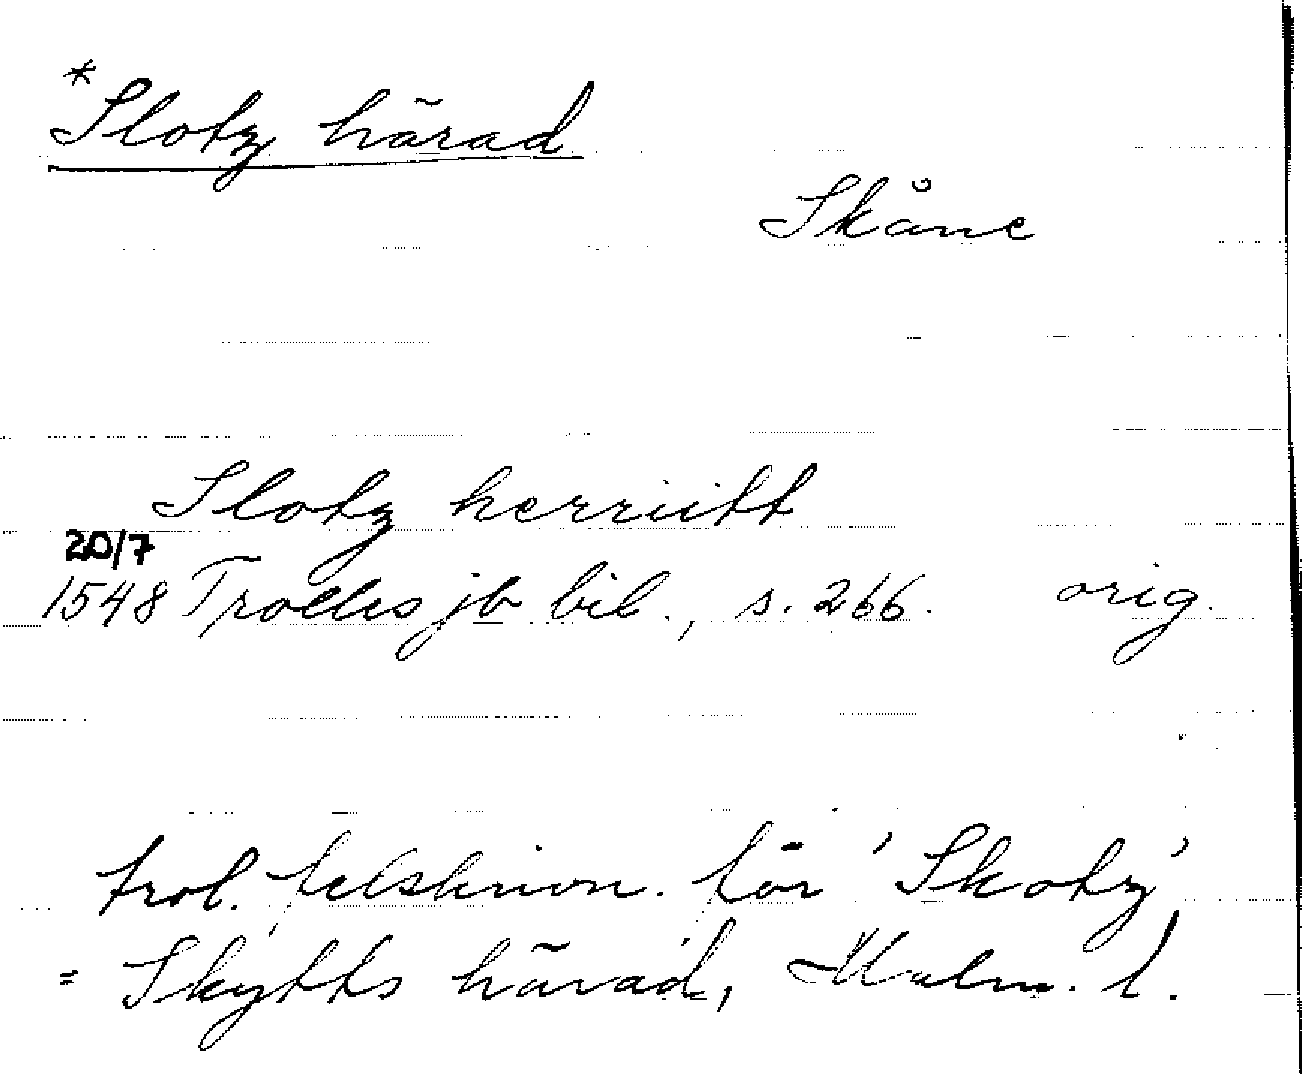 *Slotz härad
Skåne
Slotz herriitt
20/7
1548 Trolles jb bil., s. 266. orig.
trol. felskrivn. för 'Skotz'
= Skytts härad, Malm. l.